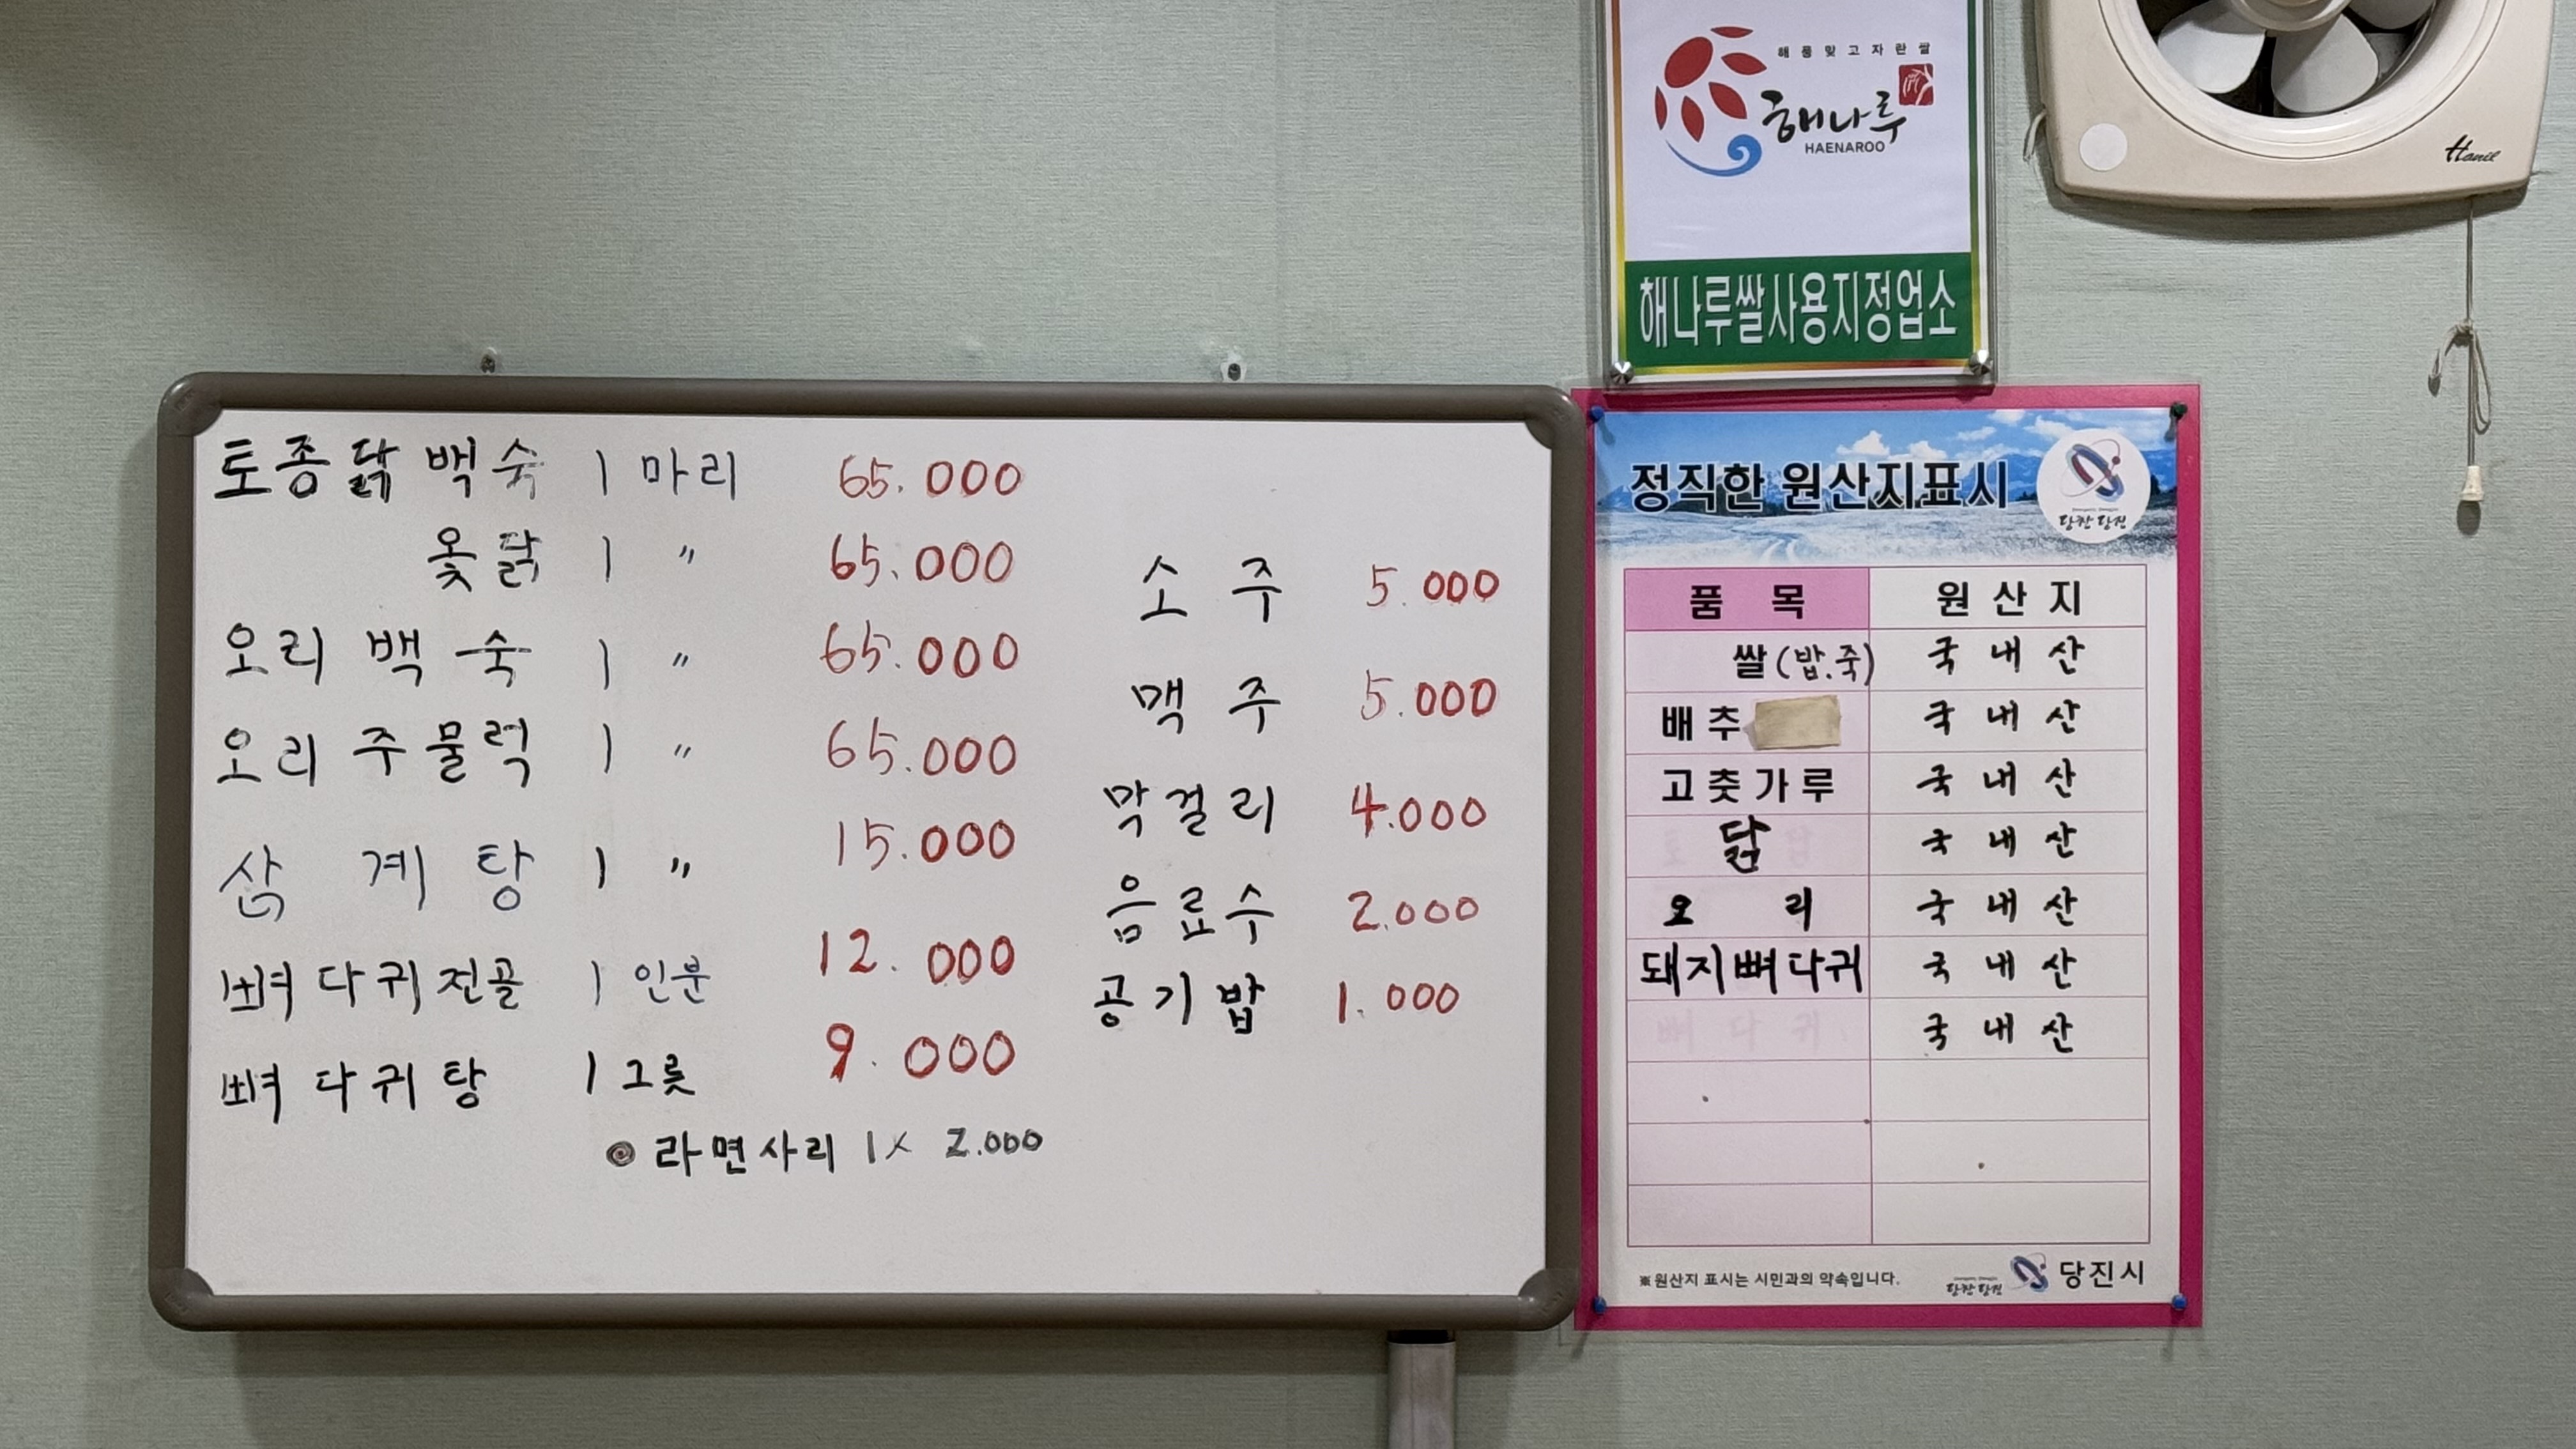 해풍맞고자란쌀
해나루
HAENAROO
해나루쌀사용지정업소
Hanil
토종닭백숙 1 마리 65.000
옻닭 1 〃 65.000
오리 백숙 1 〃 65.000
오리 주물럭 1 〃 65.000
삼계탕 1 〃 15.000
뼈다귀전골 1 인분 12.000
뼈다귀탕 1 그릇 9.000
◉ 라면사리 1× 2.000
소주 5.000
맥주 5.000
막걸리 4.000
음료수 2.000
공기밥 1.000
정직한 원산지표시
당찬 당진
품목 원산지
쌀(밥.죽) 국내산
배추 국내산
고춧가루 국내산
닭 국내산
오리 국내산
돼지뼈다귀 국내산
뼈다귀 국내산
※원산지 표시는 시민과의 약속입니다.
당찬 당진 당진시